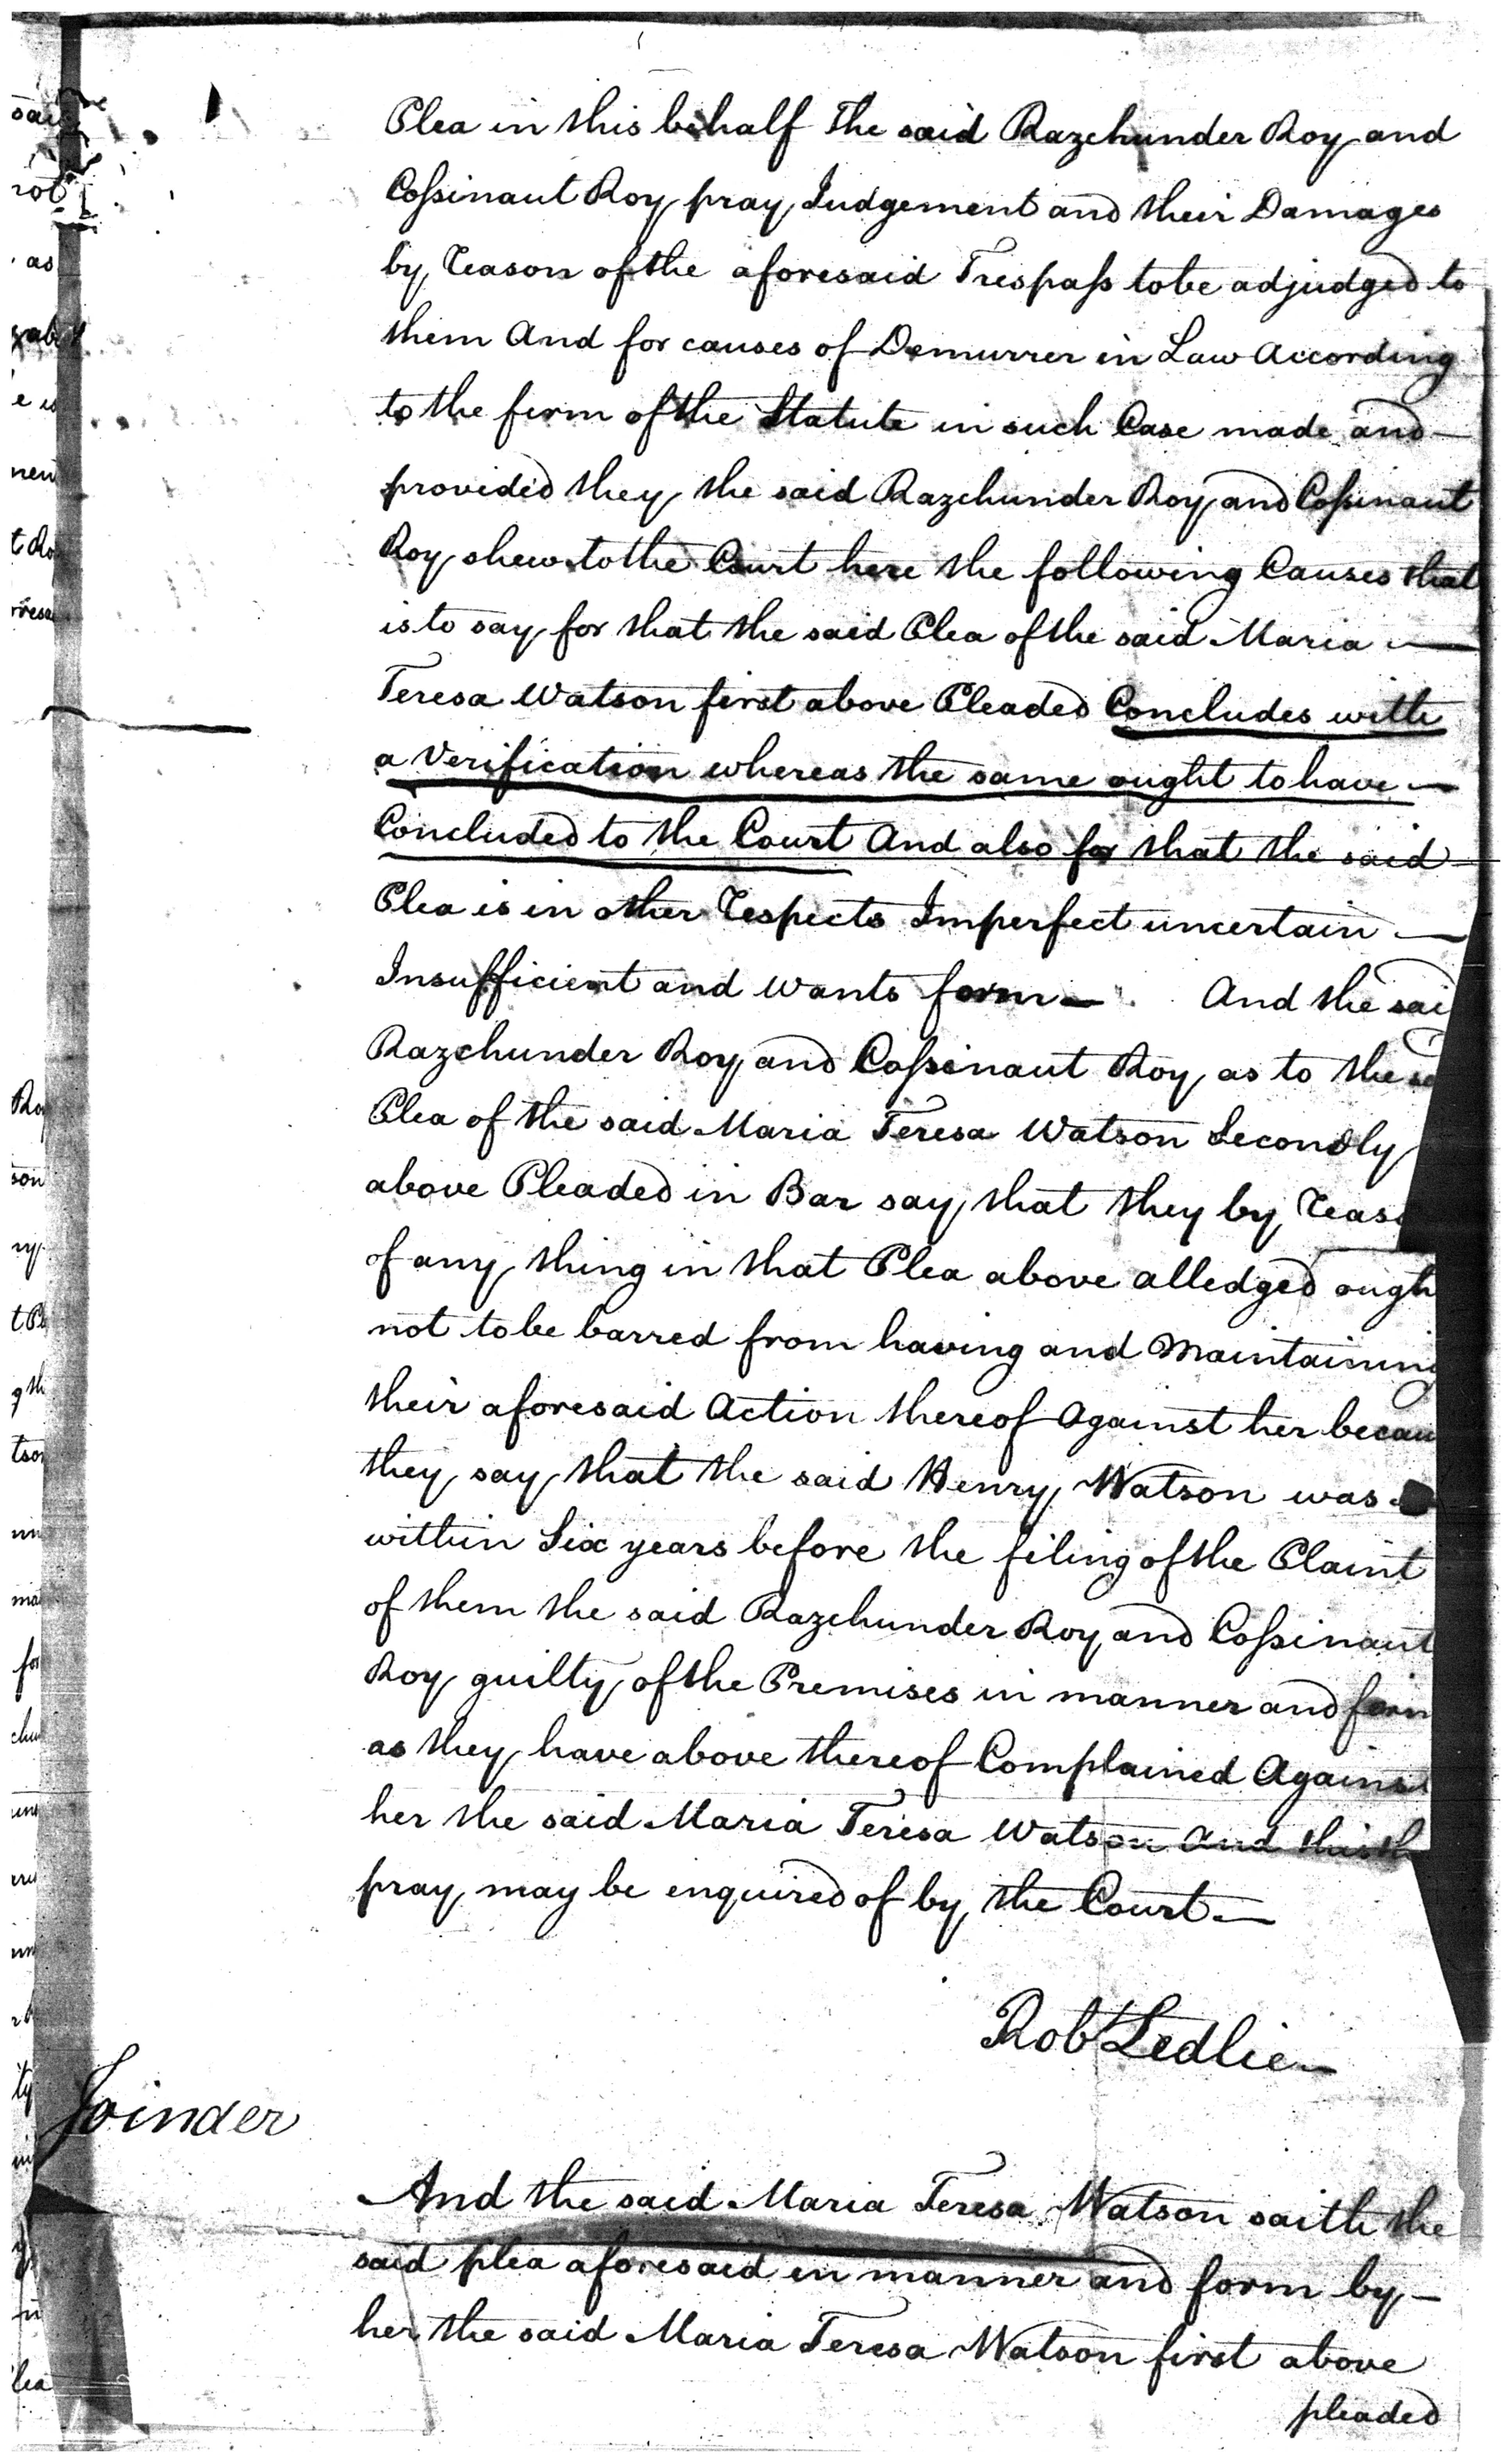 Plea in this behalf The said Razchunder Roy and
Coſsinaut Roy pray Judgement and their Damages
by Reason of the aforesaid Trespaſs to be adjudged to
them And for causes of Demurrer in Law According
to the form of the Statute in such Case made and —
provided they the said Razchunder Roy and Coſsinaut
Roy shew to the Court here the following Causes that
is to say for that the said Plea of the said Maria —
Teresa Watson first above Pleaded Concludes with
a Verification whereas the same ought to have —
Concluded to the Court And also for that the said
Plea is in other Respects Imperfect uncertain —
Insufficient and wants form — And the sai
Razchunder Roy and Coſsinaut Roy as to the
Plea of the said Maria Teresa Watson Secondly
above Pleaded in Bar say that they by Reaso
of any thing in that Plea above alledged ough
not to be barred from having and Maintaining
their aforesaid Action thereof Against her becau
they say that the said Henry Watson was
within Six years before the filing of the Plaint
of them the said Razchunder Roy and Coſsinaut
Roy guilty of the Premises in manner and form
as they have above thereof Complained Against
her the said Maria Teresa Watson And this th
pray may be enquired of by the Court —
Robt Ledlie —
Joinder
And the said Maria Teresa Watson saith the
said plea aforesaid in manner and form by —
her the said Maria Teresa Watson first above
pleaded